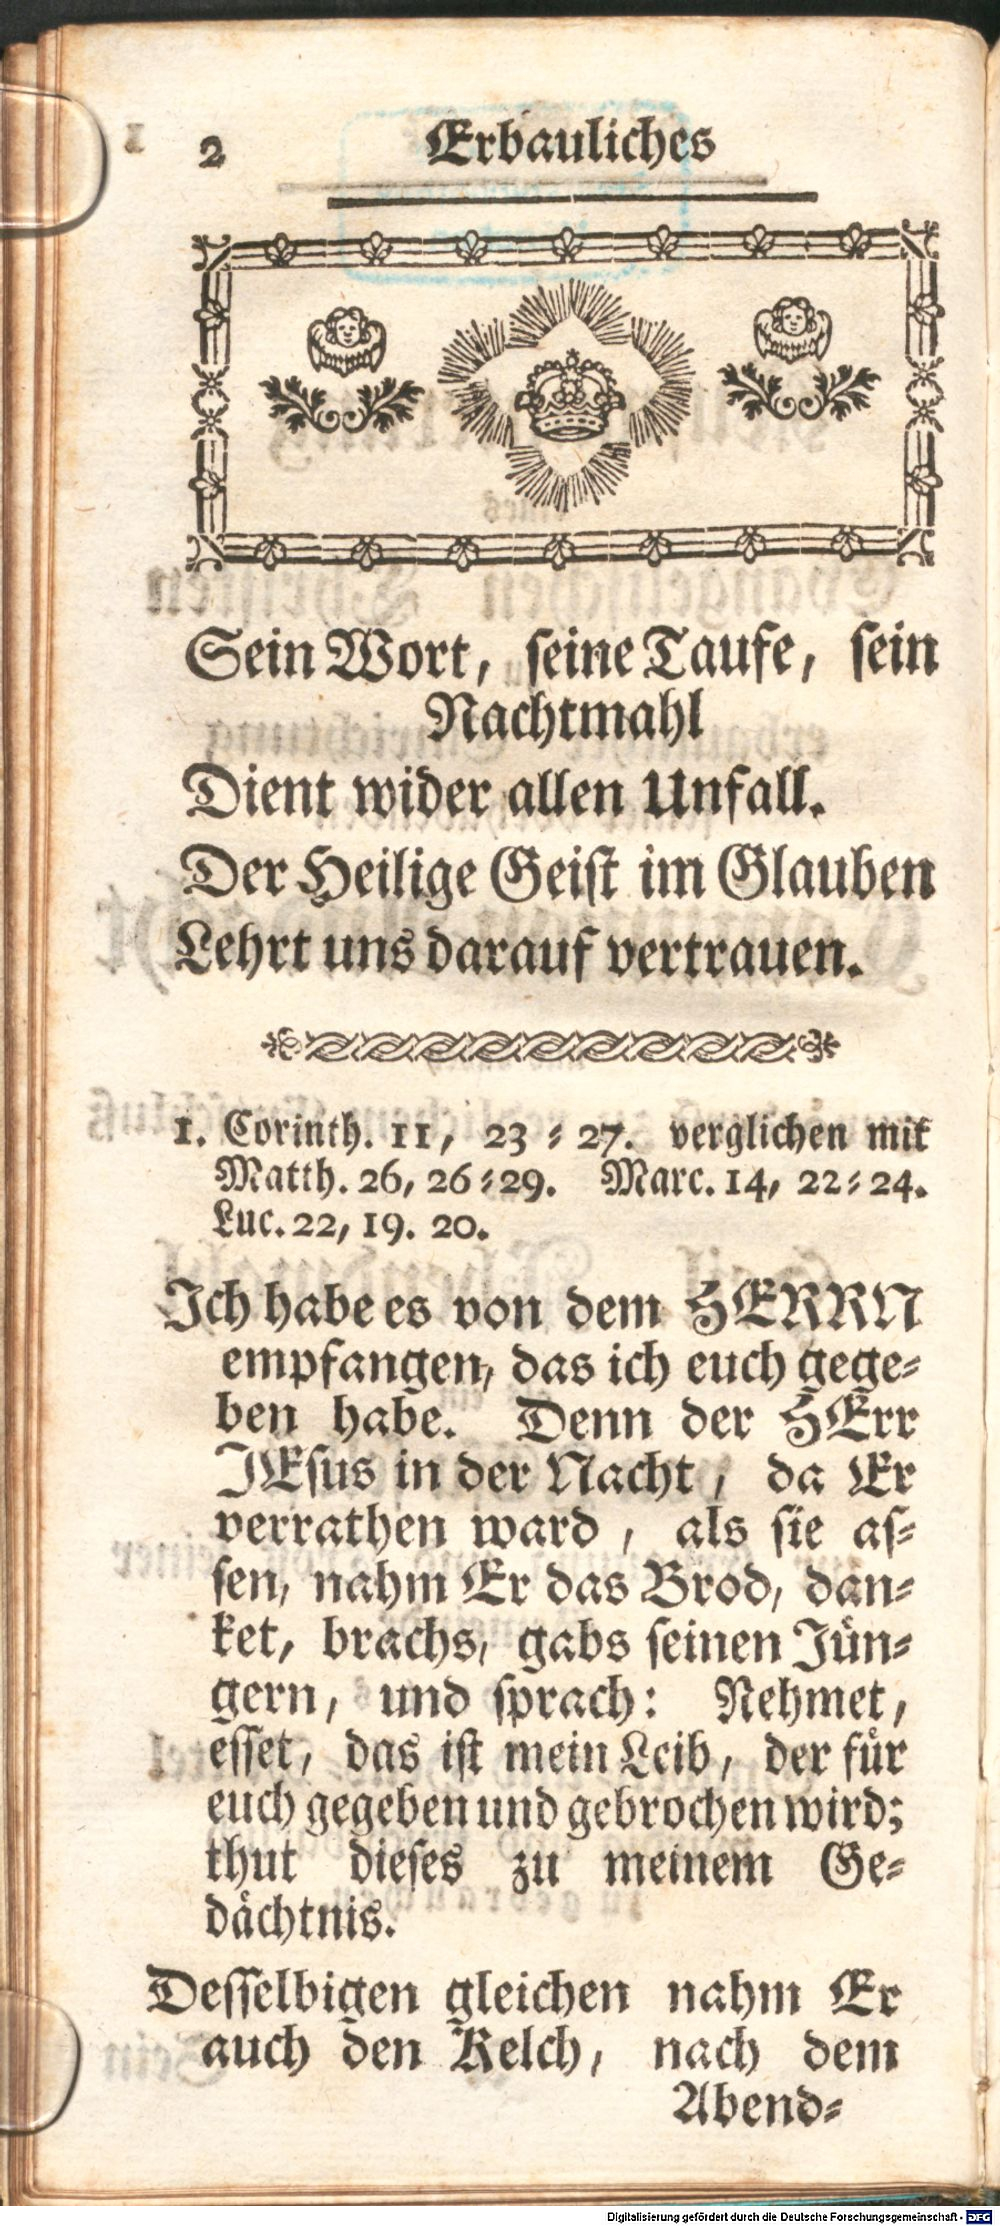 2 Erbauliches
Sein Wort, ſeine Taufe, ſein
Nachtmahl
Dient wider allen Unfall.
Der Heilige Geiſt im Glauben
Lehrt uns darauf vertrauen.
1. Corinth. 11, 23 ⸗ 27. verglichen mit
Matth. 26, 26⸗29. Marc. 14, 22⸗24.
Luc. 22, 19. 20.
Ich habe es von dem HERRN
empfangen, das ich euch gege⸗
ben habe. Denn der HErr
JEſus in der Nacht, da Er
verrathen ward, als ſie aſ⸗
ſen, nahm Er das Brod, dan⸗
ket, brachs, gabs ſeinen Jün⸗
gern, und ſprach: Nehmet,
eſſet, das iſt mein Leib, der für
euch gegeben und gebrochen wird;
thut dieſes zu meinem Ge⸗
dächtnis.
Deſſelbigen gleichen nahm Er
auch den Kelch, nach dem
Abend⸗
Digitalisierung gefördert durch die Deutsche Forschungsgemeinschaft - DFG